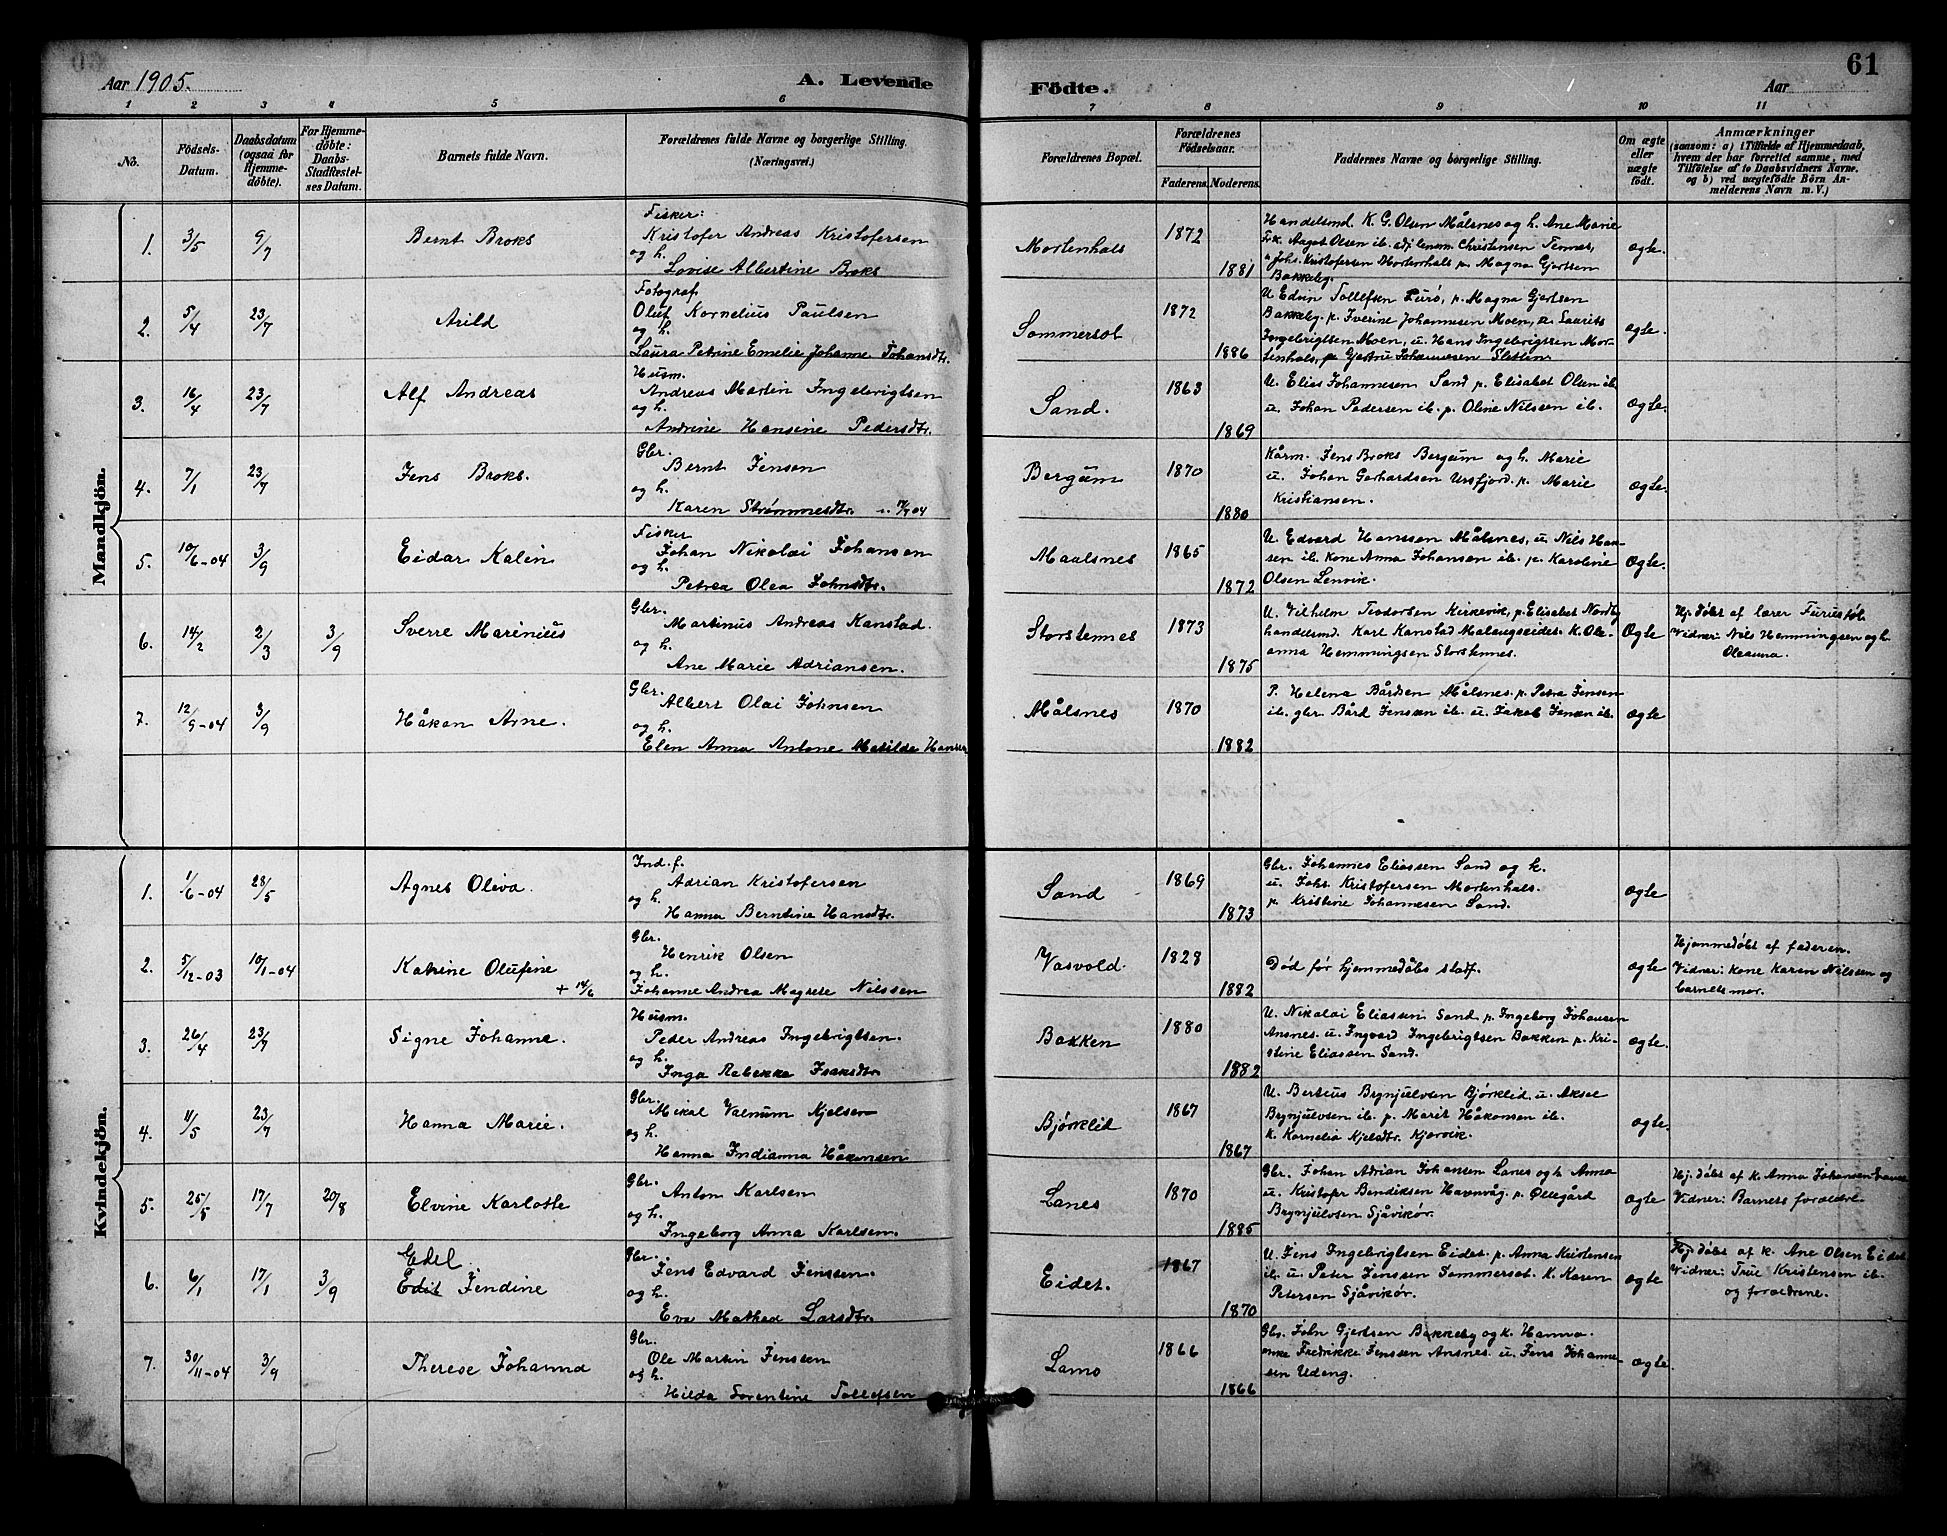 Aar 1905. A. Levende Födte. Aar 61
1 2 3 4 5 6 7 8 9 10 11
No.
Födsels-Datum.
Daabsdatum (ogsaa for Hjemme-döbte).
For Hjemme-döbte: Daabs-Stadfæstel-ses Datum.
Barnets fulde Navn.
Forældrenes fulde Navne og borgerlige Stilling.
(Næringsvei.)
Forældrenes Bopæl.
Forældrenes Födselsaar.
Faderens. Moderens.
Faddernes Navne og borgerlige Stilling.
Om ægte eller uægte födt.
Anmærkninger
(saasom: a) i Tilfælde af Hjemmedaab,
hvem der har forrettet samme, med
Tilföielse af to Daabsvidners Navne,
og b) ved uægtefödte Börn An-
melderens Navn m. V.)
Mandkjön.
1. 3/5 9/7 Bernt Broks
Fisker:
Kristofer Andreas Kristofersen
og h.
Lovise Albertine Broks
Mortenhals 1872 1881
Handelsmd. K. G. Olsen Målsnes og h. Ane Marie
Frk. Aagot Olsen ib. Christensen Tennes,
Johs. Kristofersen Mortenhals p. Magna Gjertsen
Bakkeby.
ægte.
2. 5/4 23/7 Arild
Fotograf.
Oluf Kornelius Paulsen
og h.
Laura Petrine Emelie Johanne Johansdtr.
Sommersot 1872 1886
U. Edvin Tollefsen p. Magna Gjertsen
Bakkeby. p. Iverine Johannesen Moen, u. Laurits
Ingebrigtsen Moen, u. Hans Ingebrigtsen Mor-
tenhals, p. Johannesen Sletten
ægte.
3. 16/4 23/7 Alf Andreas
Husm.
Andreas Martin Ingebrigtsen
og h.
Andrine Hansine Pedersdtr.
Sand. 1863 1869
U. Elias Johannesen Sand p. Elisabet Olsen ib.
u. Johan Pedersen ib. p. Oline Nilssen ib.
Ægte.
4. 7/1 23/7 Jens Broks.
Gbr.
Bernt Jensen
og h.
Karen Strømmesdtr. 04
Bergum 1870 1880
Kårm. Jens Broks Bergum og h. Marie
u. Johan Gerhardsen Ursfjord. p. Marie
Kristiansen.
Ægte.
5. 10/6-04 3/9 Eidar Kalin
Fisker
Johan Nikolai Johansen
og h.
Petrea Olea Johnsdtr.
Maalsnes 1865 1872
U. Edvard Hanssen Målsnes, u. Nils Han-
sen ib. Kone Anna Johansen ib. p. Karoline
Olsen Lenvik.
Ægte.
6. 14/2 2/3 3/9 Sverre Marinius
Gbr.
Martinus Andreas Kanstad.
og h.
Ane Marie Adriansen.
Storstennes 1873 1875
U. Vilhelm Teodorsen Kirkevik, p. Elisabet Nordby
handelsmd. Karl Kanstad Malangseidet. K. Ole-
anna Hemmingsen Storstennes.
Ægte
Hj. døbt af lærer Furustøl
Vidner: Nils Hemmingsen og h.
Oleanna.
7. 12/9-04 3/9 Håkon Arne.
Gbr.
Albert Olai Johnsen
og h.
Elen Anna Antone Matilde Hansen
Målsnes 1870 1882
P. Helena Bårdsen Målsnes. p. Petra Jensen
ib. gbr. Bård Jensen ib. u. Jakob Jensen ib.
ægte
Kvindekjön.
1. 1/6-04 28/5 Agnes Oliva.
Ind. f.
Adrian Kristofersen
og h.
Hanna Berntine Hansdtr.
Sand 1869 1873
Gbr. Johannes Eliassen Sand og h.
u. Johs. Kristofersen Mortenhals.
p. Kristine Johannesen Sand.
ægte
2. 5/12-03 10/1-04 Katrine Olufine
+ 14/6
Gbr.
Henrik Olsen
og h.
Johanne Andrea Magrete Nilssen
Vasvold. 1828 1882
Død før hjemmedåbs stadf.
ægte
Hjemmedøbt af faderen.
Vidner: kone Karen Nilssen og
barnets mor.
3. 26/4 23/7 Signe Johanna.
Husm.
Peder Andreas Ingebrigtsen.
og h.
Inga Rebekka Isaksdtr.
Bakken 1880 1882
U. Nikolai Eliassen Sand p. Ingeborg Johansen
Ansnes. u. Ingvard Ingebrigtsen Bakken p. Kri-
stine Eliassen Sand.
ægte.
4. 11/5 23/7 Hanna Marie.
Gbr.
Mikal Valnum Kjelsen
og h.
Hanna Indianna Håkonsen
Bjørklid 1867 1867
U. Berteus Brynjulvsen Bjørklid. u. Aksel
Brynjulvsen ib. p. Marit Håkonsen ib.
K. Kornelia Kjelsdtr. Kjervik.
ægte.
5. 25/5 17/7 20/8 Elvine Karlotte
Gbr.
Anton Karlsen
og h.
Ingeborg Anna Karlsen.
Lanes 1870 1885
Gbr. Johan Adrian Johansen Lanes og h. Anna
u. Kristofer Bendiksen Havnvåg. p. Ollegård
Brynjulvsen Sjåvikør.
ægte
Hj. døbt af k. Anna Johansen Lanes
Vidner: Barnets forældre.
6. 6/1 17/1 3/9 Edel
Edit Jendine
Gbr.
Jens Edvard Jenssen.
og h.
Eva Mathea Larsdtr.
Eidet. 1867 1870
U. Jens Ingebrigtsen Eidet. p. Anna Kristensen
ib. u. Peter Jenssen Sommerset. K. Karen
Petersen Sjåvikør.
ægte
Hj. døbt af k. Ane Olsen Eidet
Vidner: True Kristensen ib.
og forældrene.
7. 30/11-04 3/9 Therese Johanna
Gbr.
Ole Martin Jenssen
og h.
Hilda Sorentine Tollefsen
Lamo 1866 1866
Gbr. John Gjertsen Bakkeby og k. Hanna.
enke Fredrikke Jenssen Ansnes. u. Jens Johanne-
sen Udeng.
ægte.